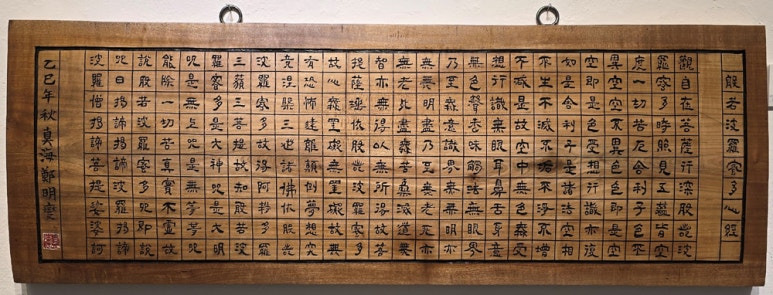 般若波羅蜜多心經
觀自在菩薩行深般若波
羅蜜多時照見五蘊皆空
度一切苦厄舍利子色不
異空空不異色色即是空
空即是色受想行識亦復
如是舍利子是諸法空相
不生不滅不垢不淨不增
不減是故空中無色無受
想行識無眼耳鼻舌身意
無色聲香味觸法無眼界
乃至無意識界無無明亦
無無明盡乃至無老死亦
無老死盡無苦集滅道無
智亦無得以無所得故菩
提薩埵依般若波羅蜜多
故心無罣礙無罣礙故無
有恐怖遠離顛倒夢想究
竟涅槃三世諸佛依般若
波羅蜜多故得阿耨多羅
三藐三菩提故知般若波
羅蜜多是大神咒是大明
咒是無上咒是無等等咒
能除一切苦真實不虛故
說般若波羅蜜多咒即說
咒曰揭諦揭諦波羅揭諦
波羅僧揭諦菩提娑婆訶
乙巳年秋真海鄭明